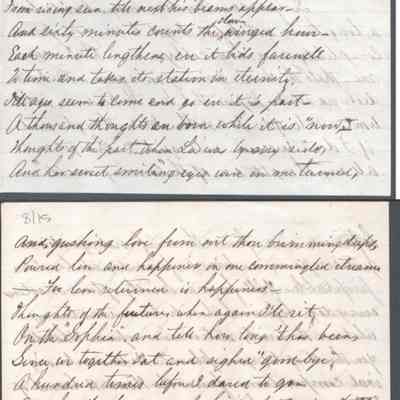 From rising sun, till next his beams appear—
And sixty minutes counts the slow winged hour—
Each minute lengthens as it bids farewell
To time and takes its station in eternity,
Till ages seem to come and go ere it is past—
A thousand thoughts are born while it is "now"
Thoughts of the past when Lu was by my side,
And her sweet smiling eyes were on me turned,
8/15
And, gushing love from out those brimming depths,
Poured love and happiness in one commingled stream
— For love returned is happiness—
Thoughts of the future when again I'll sit,
On the "Sophia", and tell how long 'thas been
Since we together sat and sighed "good-bye",
A hundred times before I dared to go—